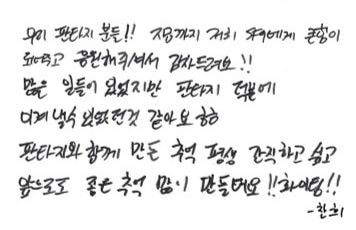 우리 판타지 분들!! 지금까지 저희 SF9에게 큰힘이
되어주고 응원해주셔서 감사드려요!!
많은 일들이 있었지만 판타지 덕분에
이겨낼수 있었던것 같아요 ㅎㅎ
판타지와 함께 만든 추억 평생 간직하고 싶고
앞으로도 좋은 추억 많이 만들어요!! 화이팅!!
-찬희